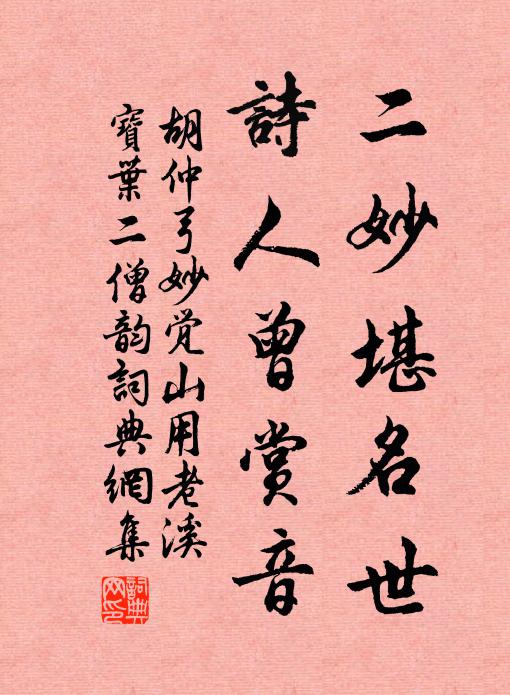 二妙堪名世
詩人曾賞音
胡仲弓妙觉山用老溪
寶葉二僧韵詞典網集
詞典网印